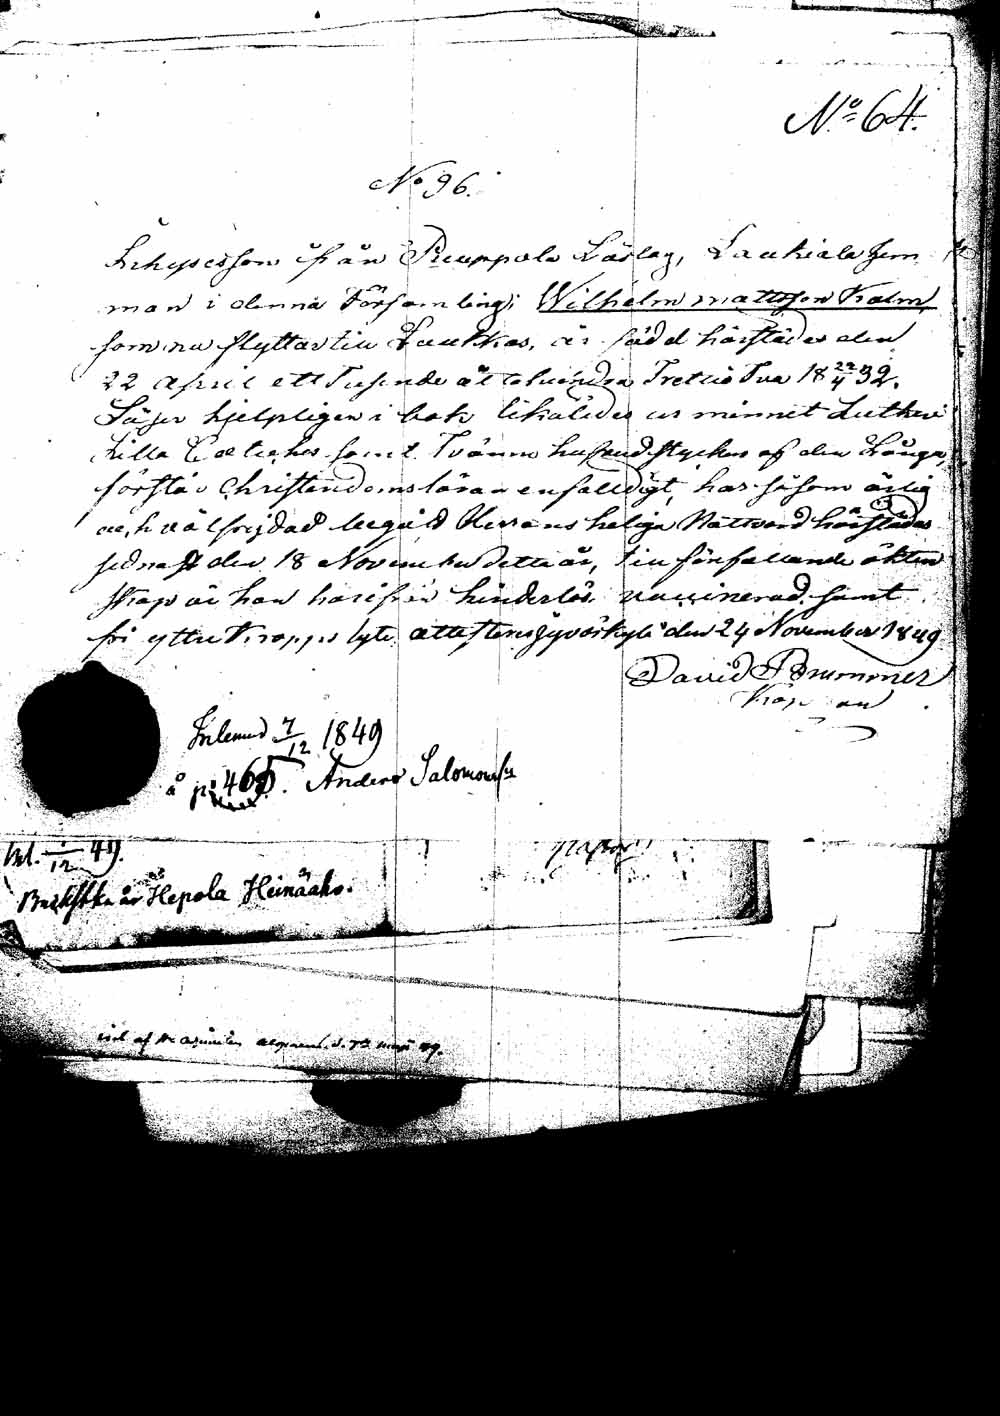 No 64.
No 96.
från Ruuppola Lärlag, Laukiala hem
man i denna Församling, Wilhelm mattsson Kalm,
som nu flyttar till Laukkas, är född härstädes den
22 April ett Tusende åttahundra Trettio Två 18 22/4 32.
Säger hjelpligen i bok likaledes ur minnet Lutheri
Lilla Cateches samt Tvänne hufvudstycken af den Långa,
förstår Christendomsläran enfalldigt, har såsom ärlig
och välfrejdad begådt Herrans heliga Nattvard härstädes
sednast den 18 November detta år, till förefallande äkten
skap är han härifrån hinderlös, vaccinerad samt
fri yttre kropps lyte attesteras Jyväskylä den 24 November 1849
David Brummer
Kapellan
Inlemnad 7/12 1849
å p: 465. Anders Salomonss
12 49.
är Hepola Heinäaho.
pastor
af
49.